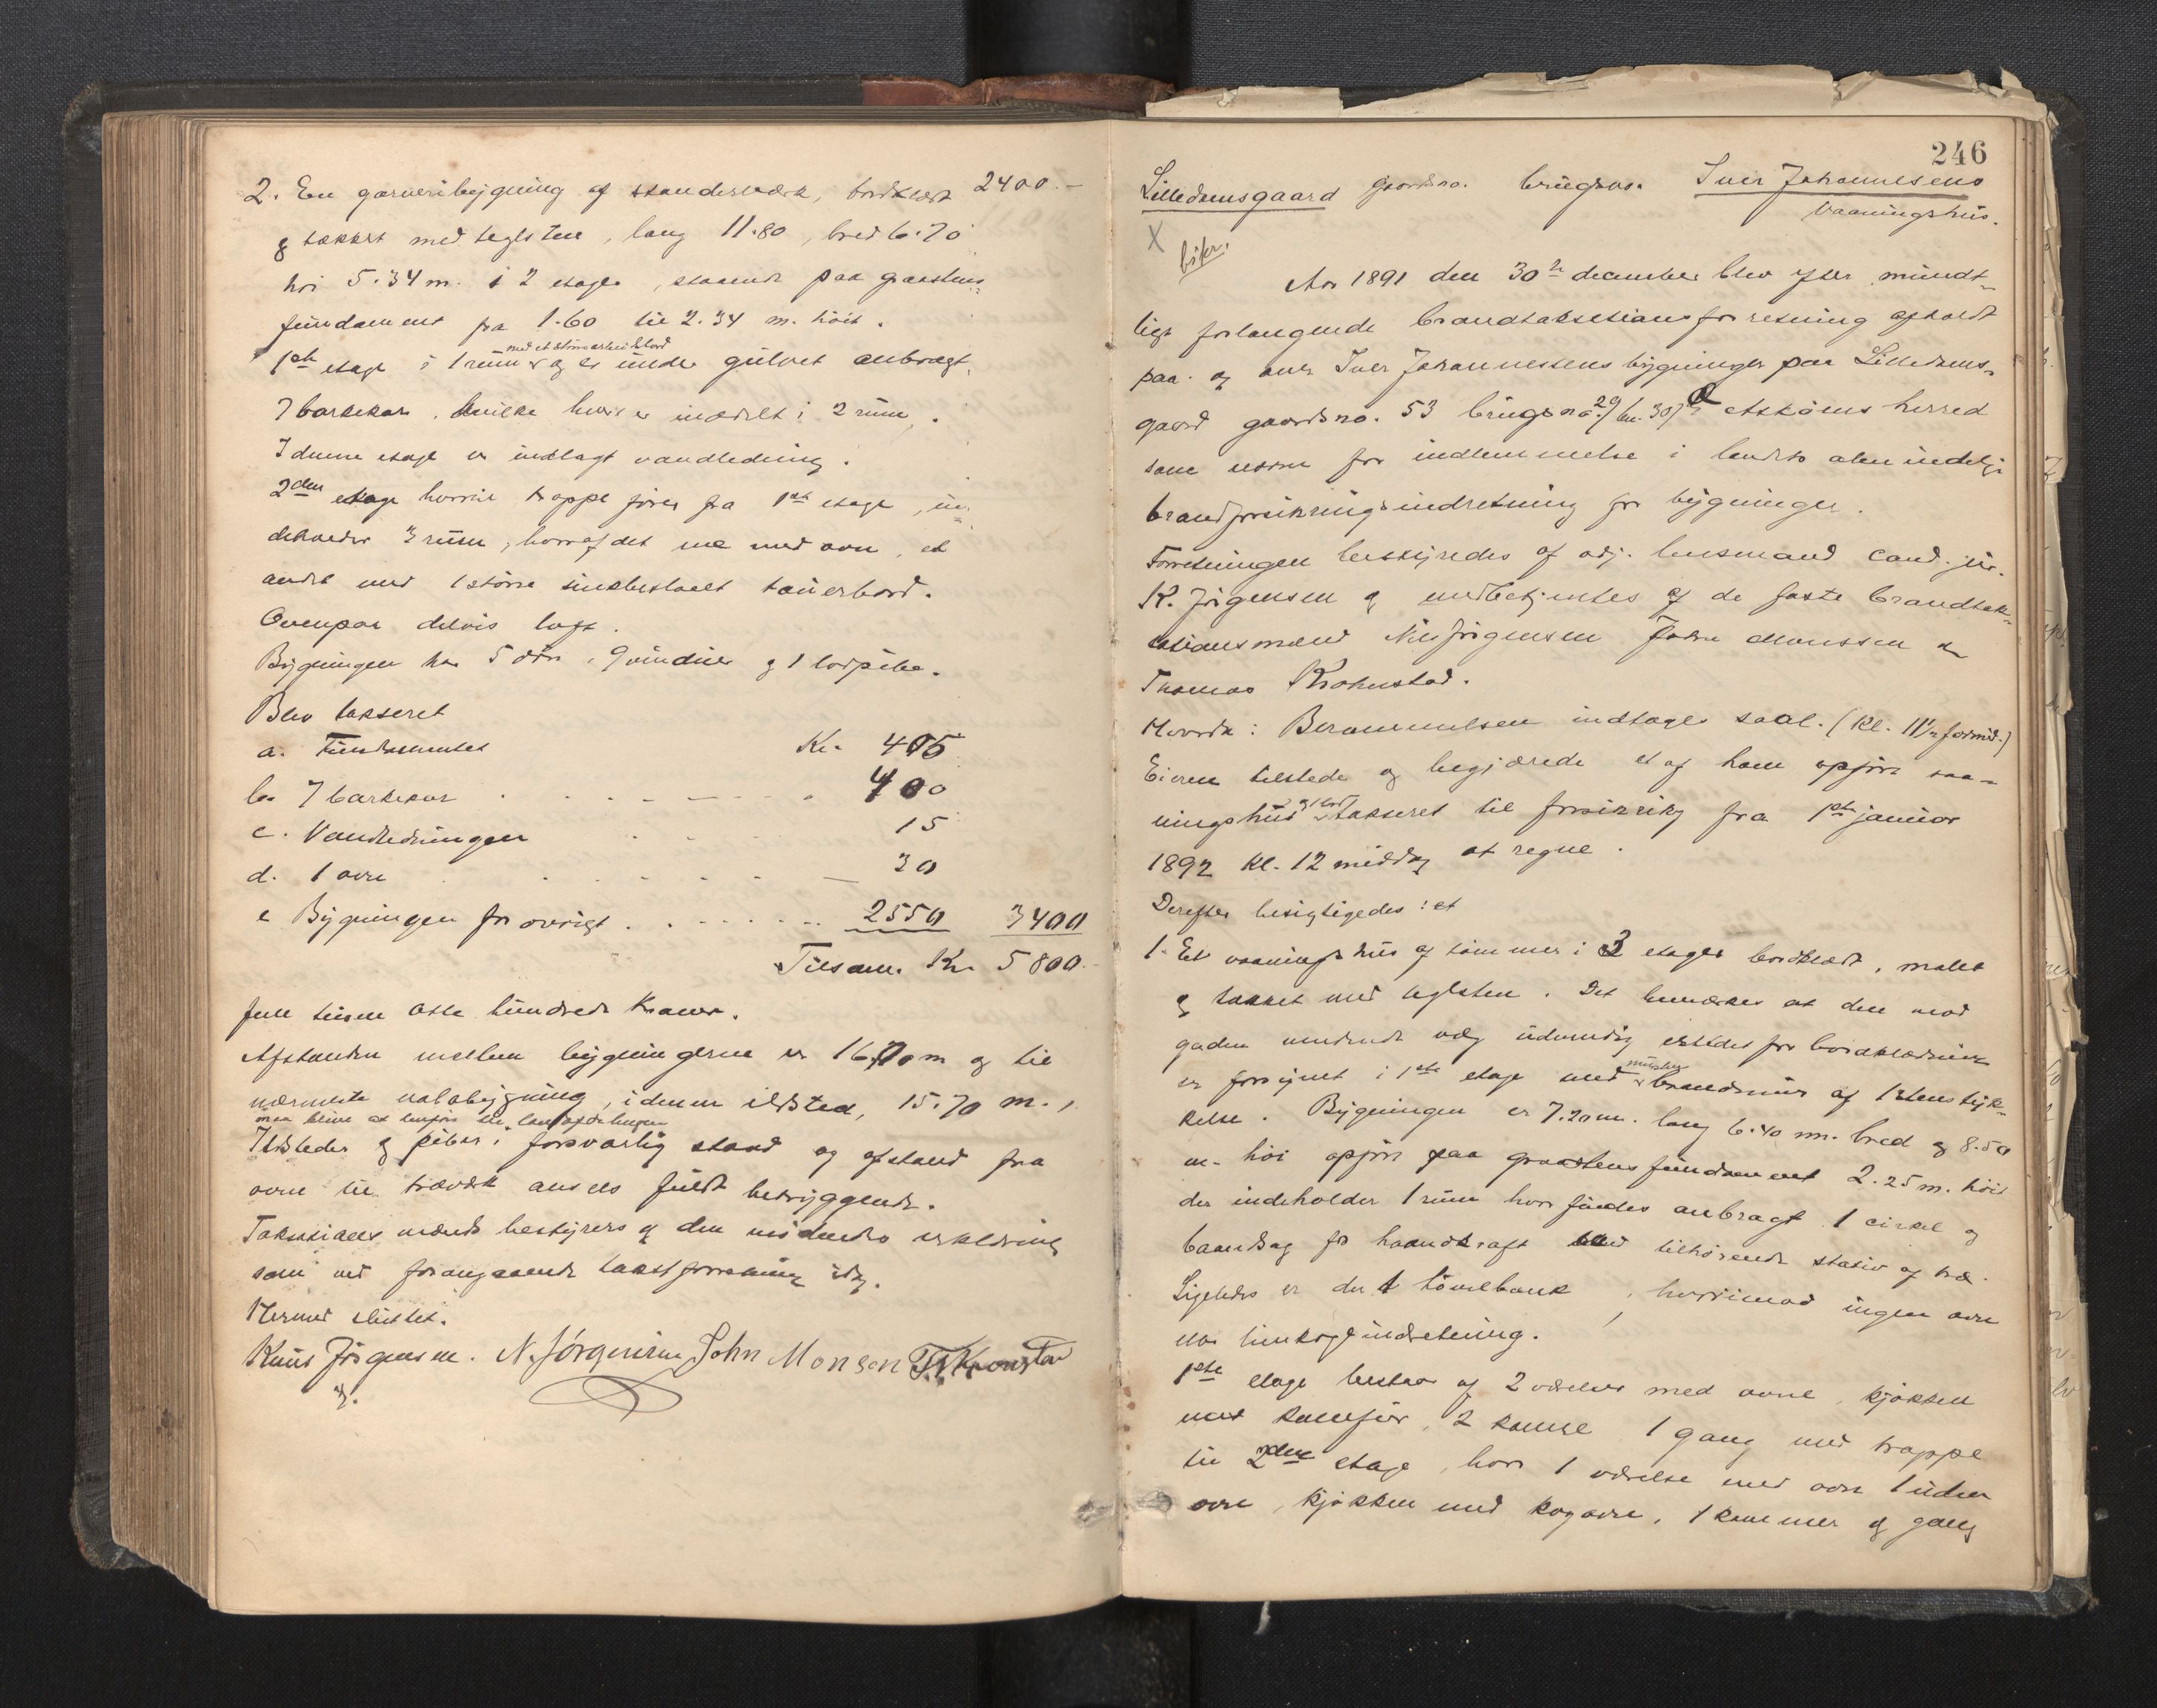 2. En garveribygning af standerværk, bordklædt 2400.-
& tækket med teglsten, lang 11.80, bred 6.70
höi 5.34 m. i 2 etager, staaende paa graastens-
fundament fra 1.60 til 2.34 m. höit.
1ste etage i 1 rum og er under gulvet anbragt
7 barkekar, hvilke hver er inddelt i 2 rum.
I denne etage er indlagt vandledning.
2den etage hvortil trappe förer fra 1ste etage, in-
deholder 3 rum, hvoraf det ene med ovn, et
andet med 1 större sinkbeslaaet bord.
Ovenpaa delvis loft.
Bygningen har 5 döre, 9 vinduer & 1 pibe.
Blev takseret
a. Fundamentet Kr. 405
b. 7 barkekar 400
c. Vandledningen 15
d. 1 ovn 30
e. Bygningen forövrigt 2550 3400
Tilsam. Kr. 5800.-
fem tusen otte hundrede Kroner.
Afstanden mellem bygningerne er 16.70 m og til
nærmeste nabobygning, i denne ildsted, 15.70 m.,
Ildsteder & piber i forsvarlig stand og afstand fra
ovne til træværk ansees fuldt betryggende.
Taksations mænds bestyrers & den erklæring
som ved foregaaende takstforretning idag.
Hermed sluttet.
Knut Jörgensen. N. Jörgensen John Monsen T. Kronstad
246
Lilledamsgaard gaardsno. brugsno. Iver Johannesens
vaaningshus.
X
Aar 1891 den 30te december blev efter mundt-
ligt forlangende brandtakstations forretning afholdt
paa og over Iver Johannessens bygninger paa Lilledams-
gaard gaardsno. 53 brugsno. 29 i Asköens herred
som norm for indlemmelse i landets almindelige
brandforsikringsindretning for bygninger.
Forretningen bestyredes af adj. lensmand cand. jur.
K. Jörgensen & medbetjentes af de faste brandtak-
stationsmænd Nils Jörgensen John Monssen &
Thomas Krohnstad.
Hvorda: Berammelsen indtages saal. (Kl. 11½ formid.)
Eieren tilstede og begjærede et af ham opfört vaa-
ningshus takseret til forsikring fra 1ste januar
1892 Kl. 12 middag at regne.
Derefter besigtigedes:
1. Et vaaningshus af tömmer i 2 etager bordklædt, malet
& tækket med teglsten. Det bemærkes at den mod
gaden vendende væg udvendig istedet for bordklædning
er forsynet i 1ste etage med brandmur af 1 stens tyk-
kelse. Bygningen er 7.20 m. lang 6.40 m. bred & 8.50
m. höi opfört paa graastens fundament 2.25 m. höit
der indeholder 1 rum hvor findes anbragt 1 cirkel og
baandsag for haandkraft med tilhörende stativ af træ.
Ligeledes er der 1 hövelbænk, hvorimod ingen ovn
eller limkogeindretning.
1ste etage bestaar af 2 værelser med ovne, kjökken
med komfur, 2 kamre 1 gang med trappe
til 2den etage, hvor 1 værelse med ovn 1 uden
ovn, kjökken med kogovn, 1 kammer & gang